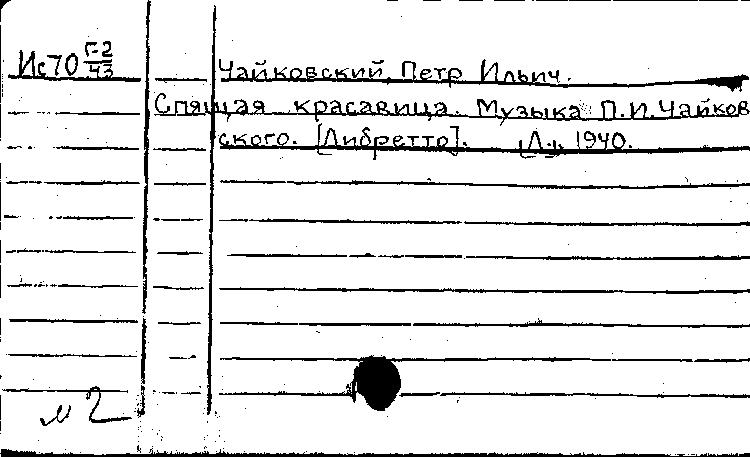 Ис70 Г-2/43
Чайковский, Петр Ильич.
Спящая красавица. Музыка П.И.Чайков
ского. [Либретто]. [Л.], 1940.
м 2